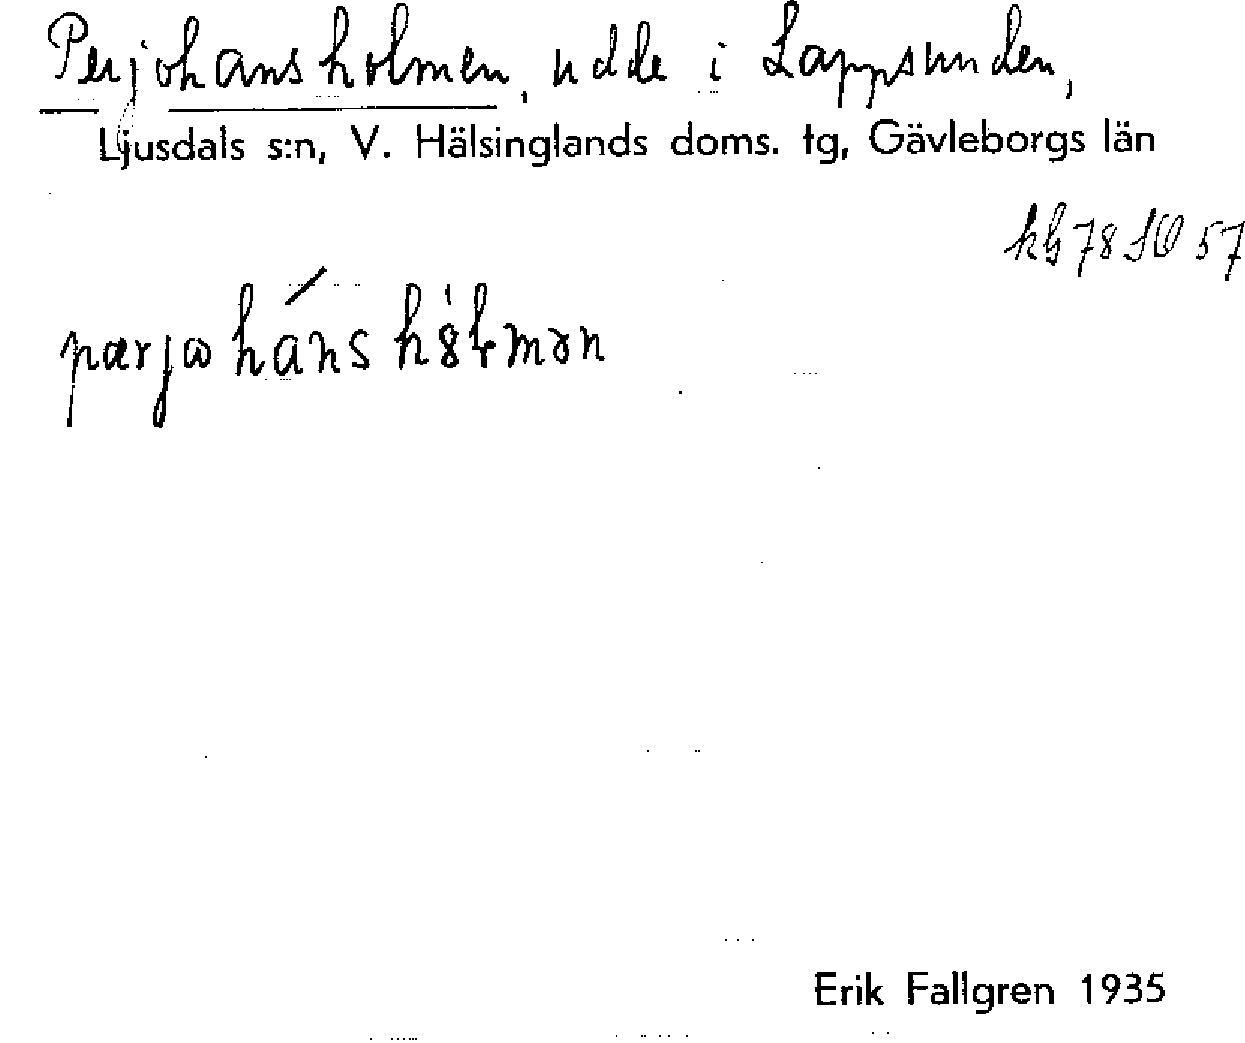 Perjohansholmen, udde i Lappsunden,
Ljusdals s:n, V. Hälsinglands doms. tg, Gävleborgs län
pærjohánshólmən
Erik Fallgren 1935